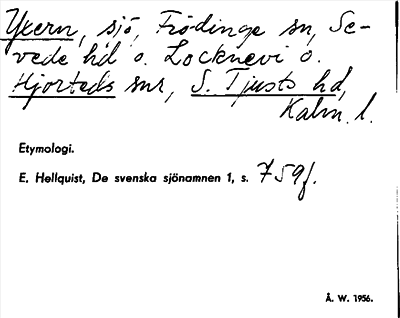 Yxern, sjö, Frödinge sn, Se-
vede hd o. Locknevi o.
Hjorteds snr, S. Tjusts hd,
Kalm. l.
Etymologi.
E. Hellquist, De svenska sjönamnen 1, s. 759f.
Å. W. 1956.